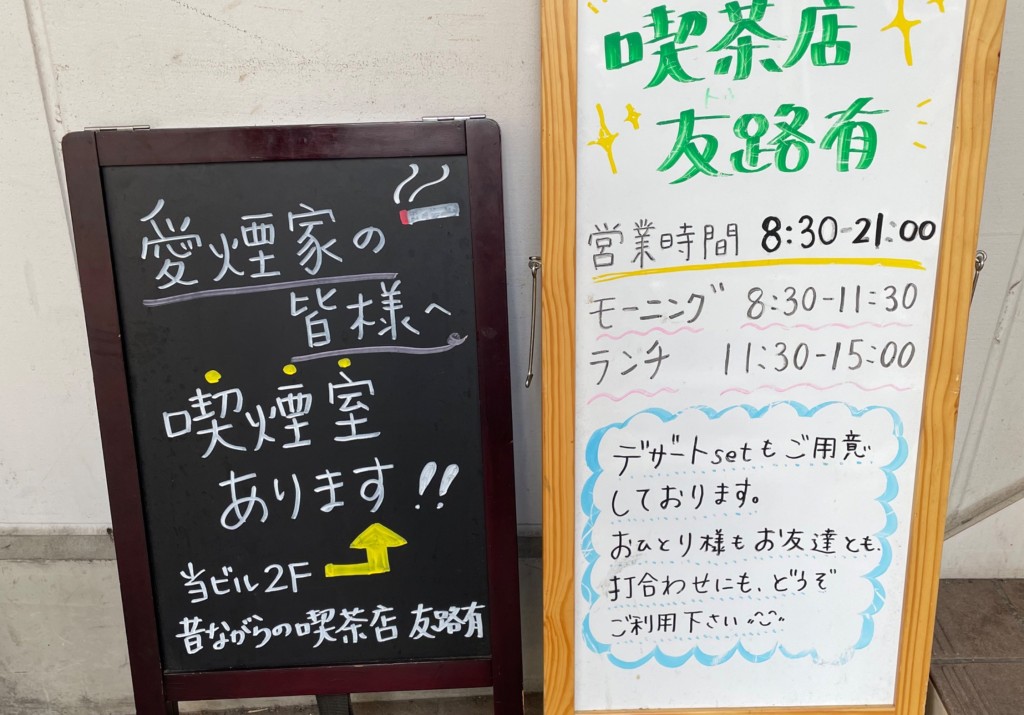 愛煙家の
皆様へ
喫煙室
あります!!
当ビル2F
昔ながらの喫茶店 友路有
喫茶店
友路有
営業時間 8:30-21:00
モーニング 8:30-11:30
ランチ 11:30-15:00
デザートsetもご用意
しております。
おひとり様もお友達とも、
打合わせにも、どうぞ
ご利用下さい